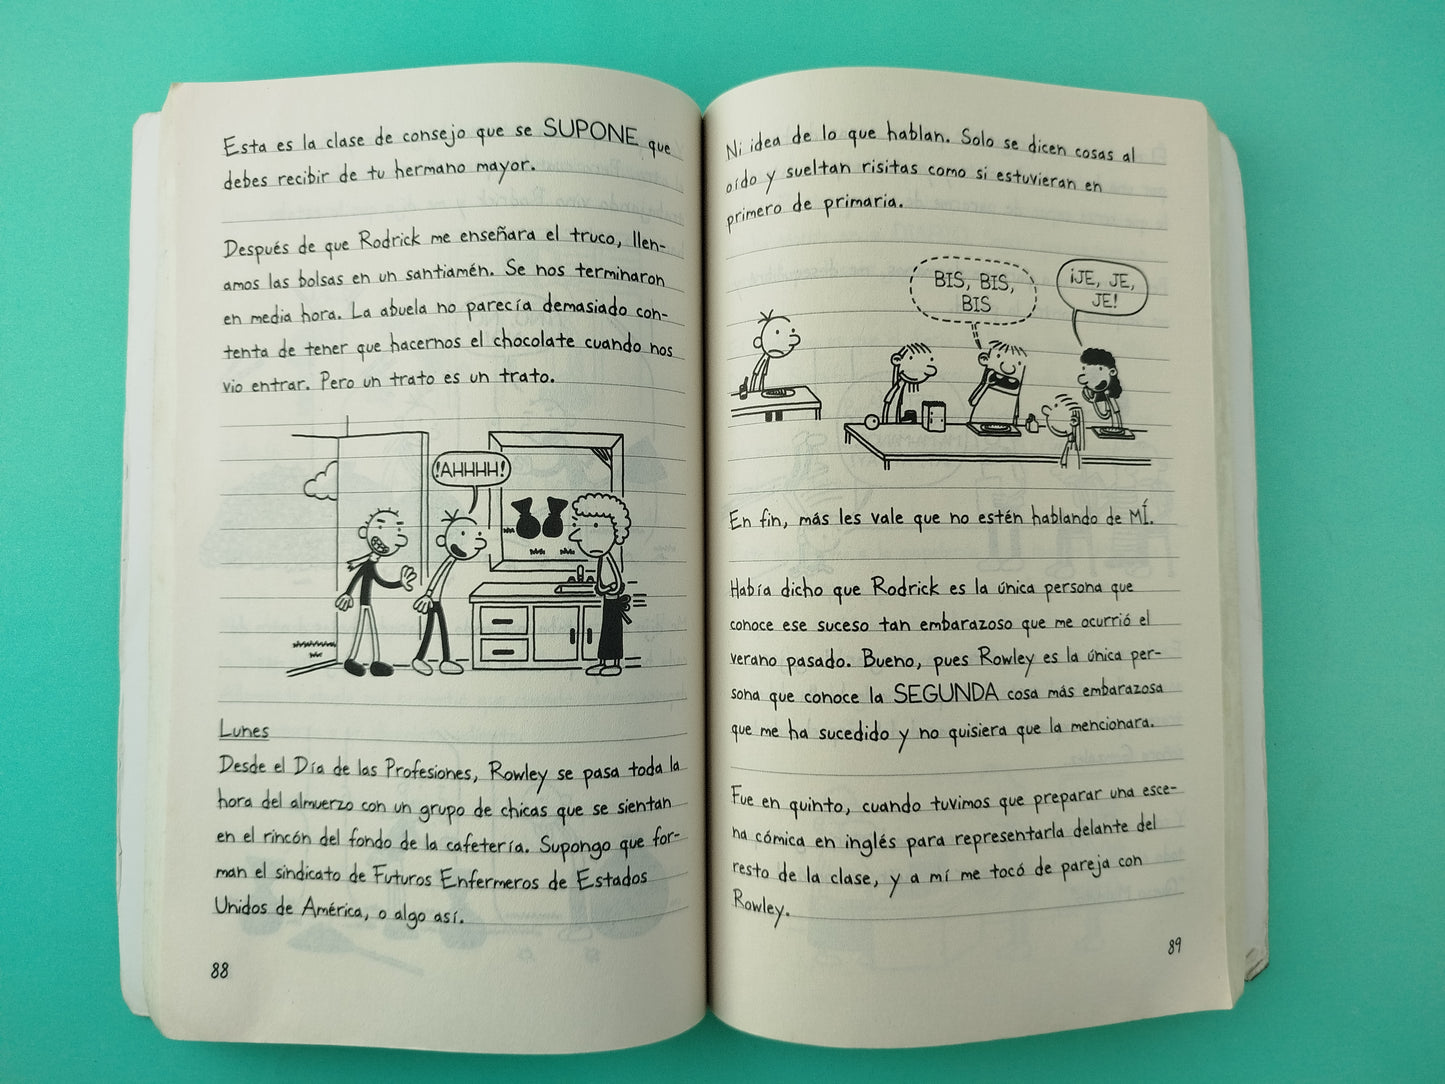 Esta es la clase de consejo que se SUPONE que
debes recibir de tu hermano mayor.
Después de que Rodrick me enseñara el truco, llen-
amos las bolsas en un santiamén. Se nos terminaron
en media hora. La abuela no parecía demasiado con-
tenta de tener que hacernos el chocolate cuando nos
vio entrar. Pero un trato es un trato.
!AHHHH!
Lunes
Desde el Día de las Profesiones, Rowley se pasa toda la
hora del almuerzo con un grupo de chicas que se sientan
en el rincón del fondo de la cafetería. Supongo que for-
man el sindicato de Futuros Enfermeros de Estados
Unidos de América, o algo así.
88
Ni idea de lo que hablan. Solo se dicen cosas al
oído y sueltan risitas como si estuvieran en
primero de primaria.
BIS, BIS,
BIS
¡JE, JE,
JE!
En fin, más les vale que no estén hablando de MÍ.
Había dicho que Rodrick es la única persona que
conoce ese suceso tan embarazoso que me ocurrió el
verano pasado. Bueno, pues Rowley es la única per-
sona que conoce la SEGUNDA cosa más embarazosa
que me ha sucedido y no quisiera que la mencionara.
Fue en quinto, cuando tuvimos que preparar una esce-
na cómica en inglés para representarla delante del
resto de la clase, y a mí me tocó de pareja con
Rowley.
89